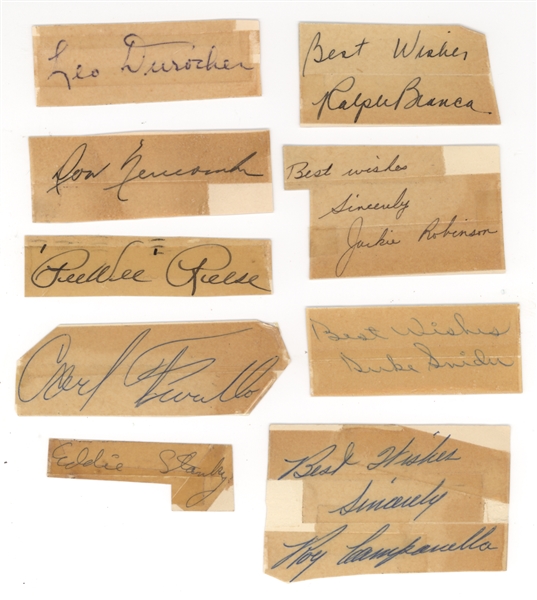 Leo Durocher
Don Newcombe
"PeeWee" Reese
Carl Furillo
Eddie Stanky
Best Wishes
Ralph Branca
Best wishes
Sincerely
Jackie Robinson
Best Wishes
Duke Snider
Best Wishes
Sincerely
Roy Campanella